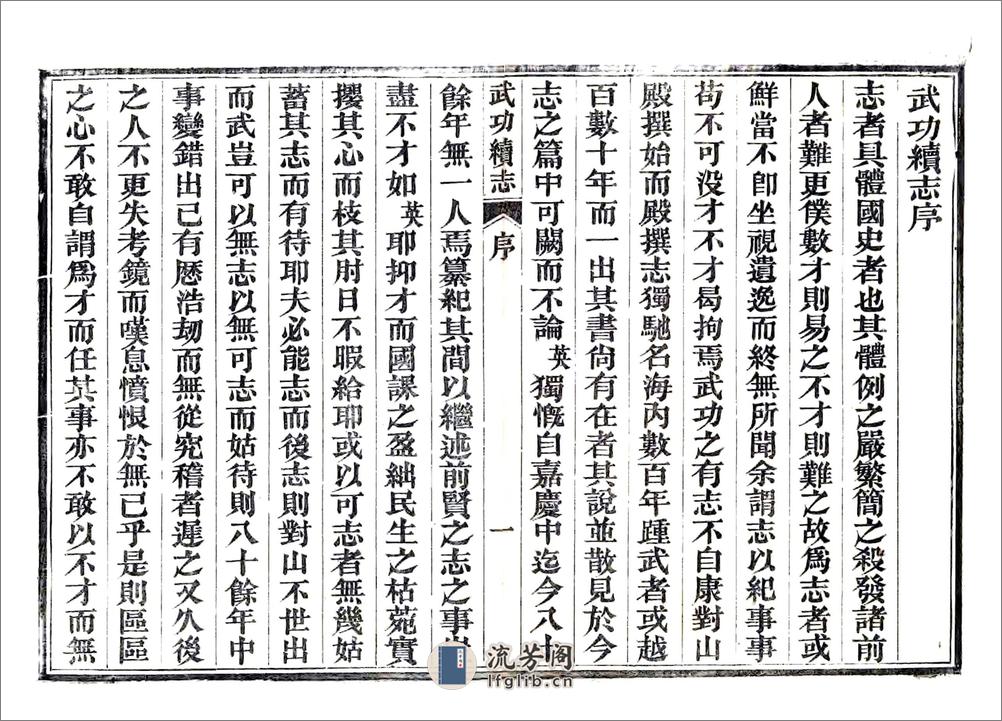 武功續志序
志者具體國史者也其體例之嚴繁簡之殺發諸前
人者難更僕數才則易之不才則難之故爲志者或
鮮當不卽坐視遺逸而終無所聞余謂志以紀事事
苟不可没才不才曷拘焉武功之有志不自康對山
殿撰始而殿撰志獨馳名海内數百年踵武者或越
百數十年而一出其書尙有在者其說並散見於今
志之篇中可闕而不論英獨慨自嘉慶中迄今八十
武功續志 序 一
餘年無一人焉纂紀其間以繼述前賢之志之事
盡不才如英耶抑才而國課之盈絀民生之枯菀實
攖其心而枝其肘日不暇給耶或以可志者無幾姑
蓄其志而有待耶夫必能志而後志則對山不世出
而武豈可以無志以無可志而姑待則八十餘年中
事變錯出已有歷浩刼而無從究稽者遲之又久後
之人不更失考鏡而嘆息憤恨於無已乎是則區區
之心不敢自謂爲才而任其事亦不敢以不才而無
流芳阁
lfglib.cn